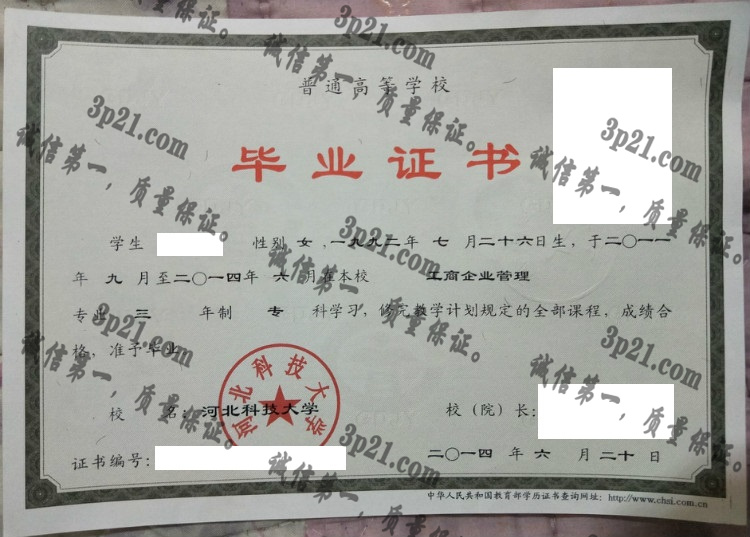 普通高等学校
毕业证书
学生 性别 女，一九九二年 七 月二十六日生，于二〇一一
年 九 月至二〇一四年 六 月在本校 工商企业管理
专业 三 年制 专 科学习，修完教学计划规定的全部课程，成绩合
格，准予毕业。
校 名：河北科技大学 校（院）长：
河北科技大学
证书编号： 二〇一四 年 六 月 二十 日
中华人民共和国教育部学历证书查询网址：http://www.chsi.com.cn
3p21.com
诚信第一，质量保证。
3p21.com
诚信第一，质量保证。
3p21.com
诚信第一，质量保证。
3p21.com
诚信第一，质量保证。
3p21.com
诚信第一，质量保证。
3p21.com
诚信第一，质量保证。
3p21.com
诚信第一，质量保证。